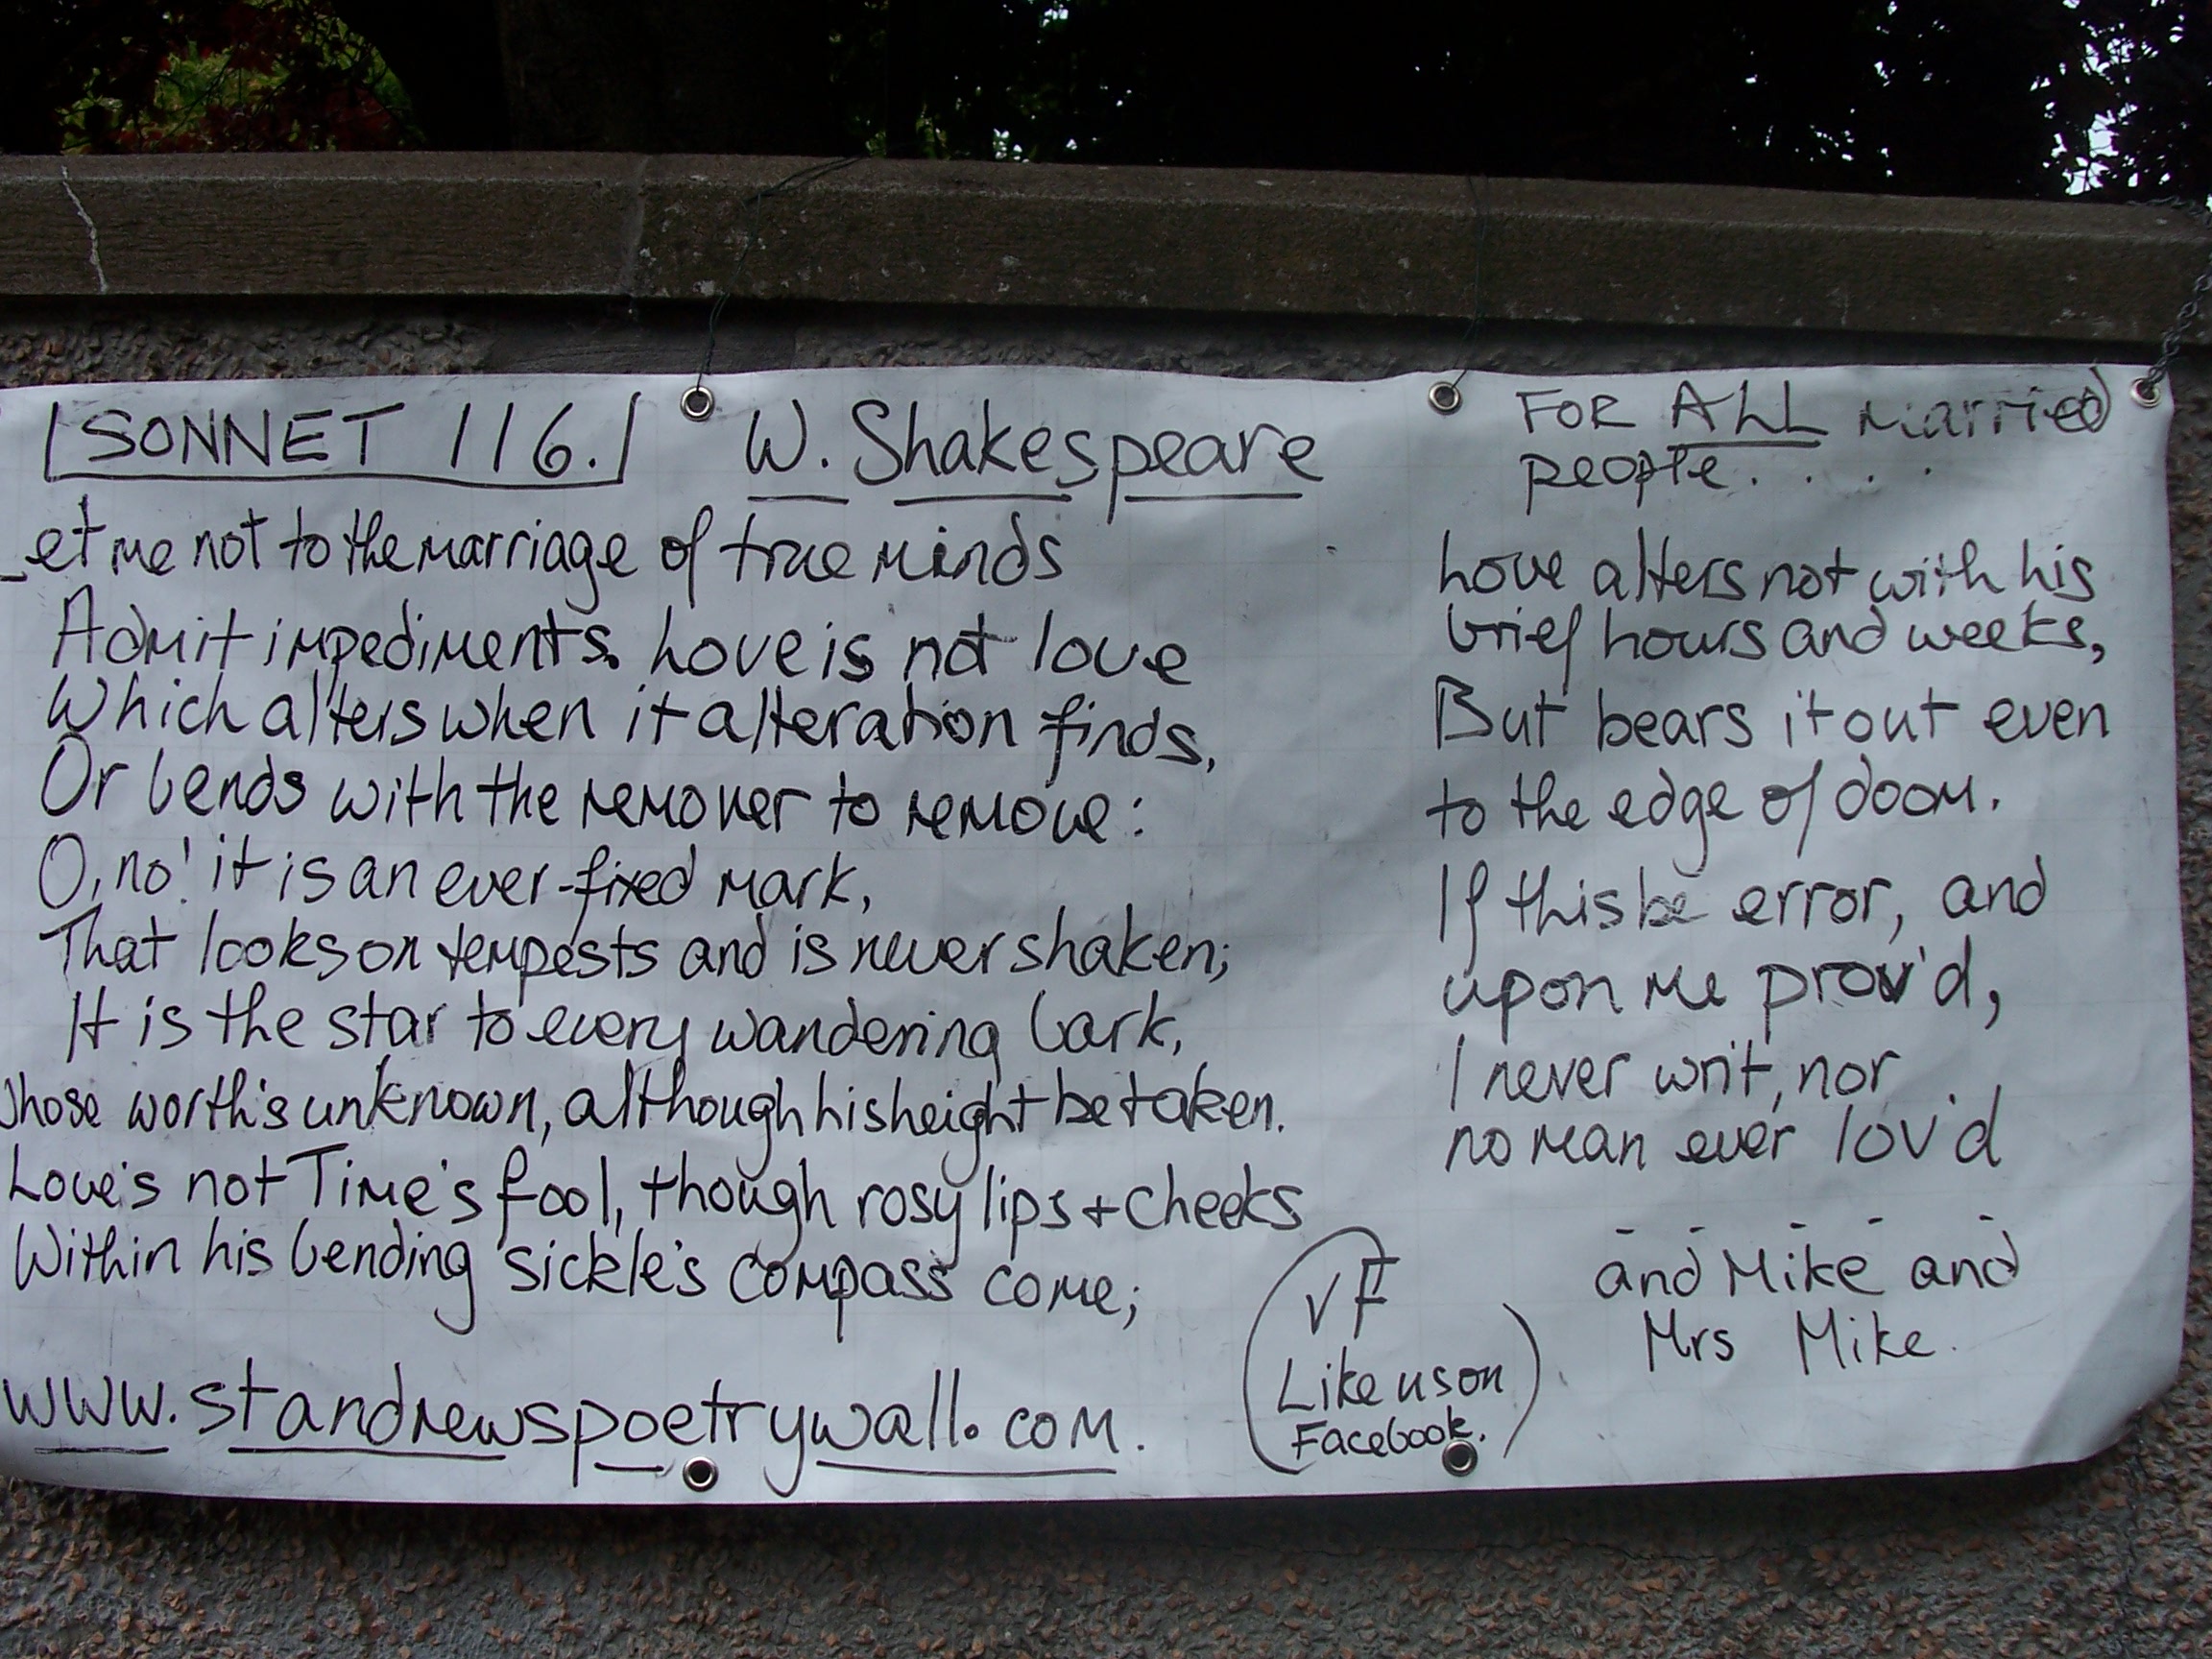 SONNET 116. W. Shakespeare
Let me not to the marriage of true minds
Admit impediments. Love is not love
Which alters when it alteration finds,
Or bends with the remover to remove:
O, no! it is an ever-fixed mark,
That looks on tempests and is never shaken;
It is the star to every wandering bark,
Whose worth's unknown, although his height be taken.
Love's not Time's fool, though rosy lips + cheeks
Within his bending sickle's compass come;
www.standrewspoetrywall.com.
FOR ALL married
people. . . . .
Love alters not with his
brief hours and weeks,
But bears it out even
to the edge of doom.
If this be error, and
upon me prov'd,
I never writ, nor
no man ever lov'd
- - - - -
and Mike and
Mrs Mike.
Like us on
Facebook.